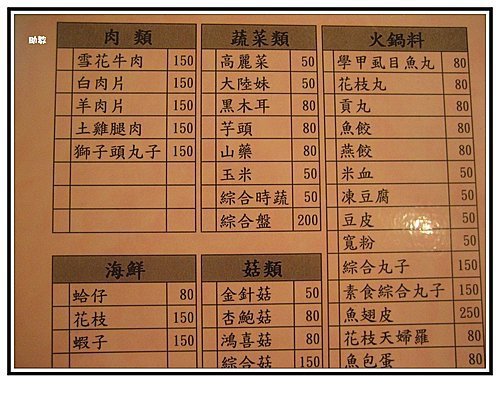 助教
肉類
雪花牛肉 150
白肉片 150
羊肉片 150
土雞腿肉 150
獅子頭丸子 150
蔬菜類
高麗菜 50
大陸妹 50
黑木耳 80
芋頭 80
山藥 80
玉米 50
綜合時蔬 50
綜合盤 200
火鍋料
學甲虱目魚丸 80
花枝丸 80
貢丸 80
魚餃 80
燕餃 80
米血 50
凍豆腐 50
豆皮 50
寬粉 50
綜合丸子 150
素食綜合丸子 150
魚翅皮 250
花枝天婦羅 80
魚包蛋 80
海鮮
蛤仔 80
花枝 150
蝦子 150
菇類
金針菇 50
杏鮑菇 80
鴻喜菇 80
綜合菇 150